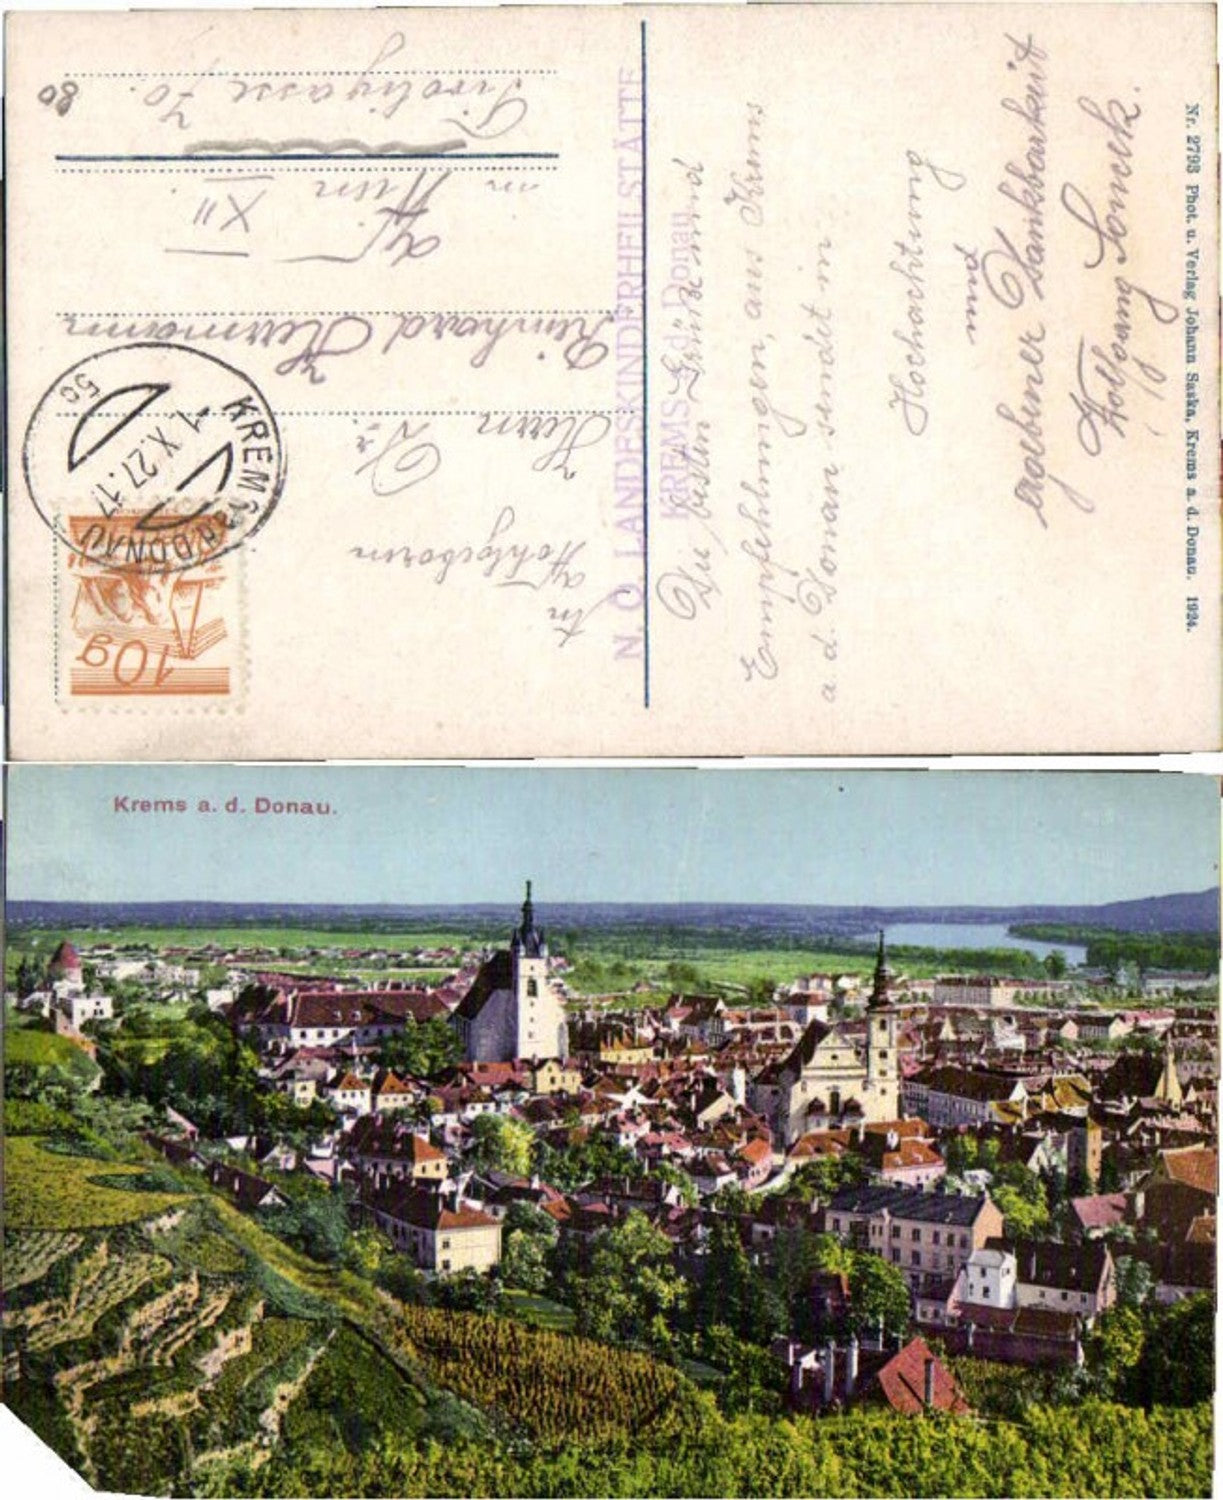 Die besten Grüße und
Empfehlungen, aus Krems
a. d. Donau sendet in
Hochachtung
und
ergebener Dankbarkeit
Wolfgang
Nr. 2793 Phot. u. Verlag Johann Saska, Krems a. d. Donau. 1924.
N. Ö. LANDESKINDERHEILSTÄTTE
KREMS a. d. Donau
An
Wohlgeboren
Herrn Dr.
Reinhard Herrmann
in Wien
XII
Tivoligasse 70.
80
KREMS a. d. DONAU
-1.X.27.17
5c
10g
Krems a. d. Donau.